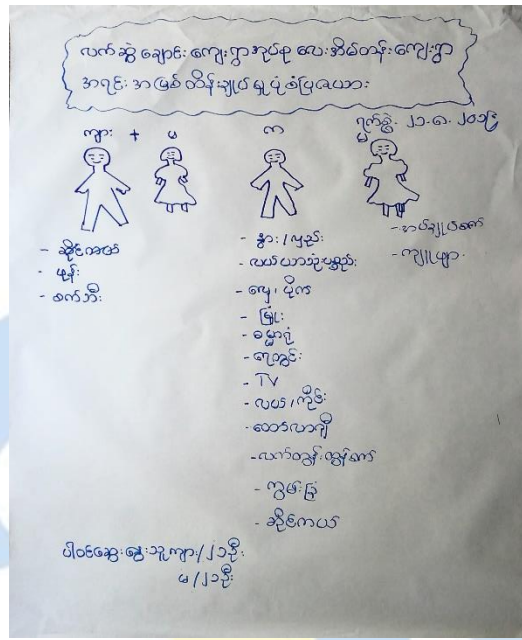 လက်ဆွဲချောင်းကျေးရွာအုပ်စု လေးအိမ်တန်းကျေးရွာ
အရင်းအမြစ်ထိန်းချုပ်မှုပုံစံပြဇယား
ရက်စွဲ - ၂၁.၈.၂၀၁၆
ကျား + မ
ကျား
- ဆိုင်ကယ်
- ဖုန်း
- စက်ဘီး
- နွား/လှည်း
- လယ်ယာသုံးပစ္စည်း
- လှေ၊ ပိုက်
- မြုံး
- ဓမ္မာရုံ
- ရေတွင်း
- TV
- လယ်၊ ကိုင်း
- ထော်လာဂျီ
- လက်တွန်း
- ကွမ်းခြံ
- ဆိုင်ကယ်
- အပ်ချုပ်စက်
ပါဝင်ဆွေးနွေးသူ ကျား/၂၁ဦး
မ/၂၁ဦး